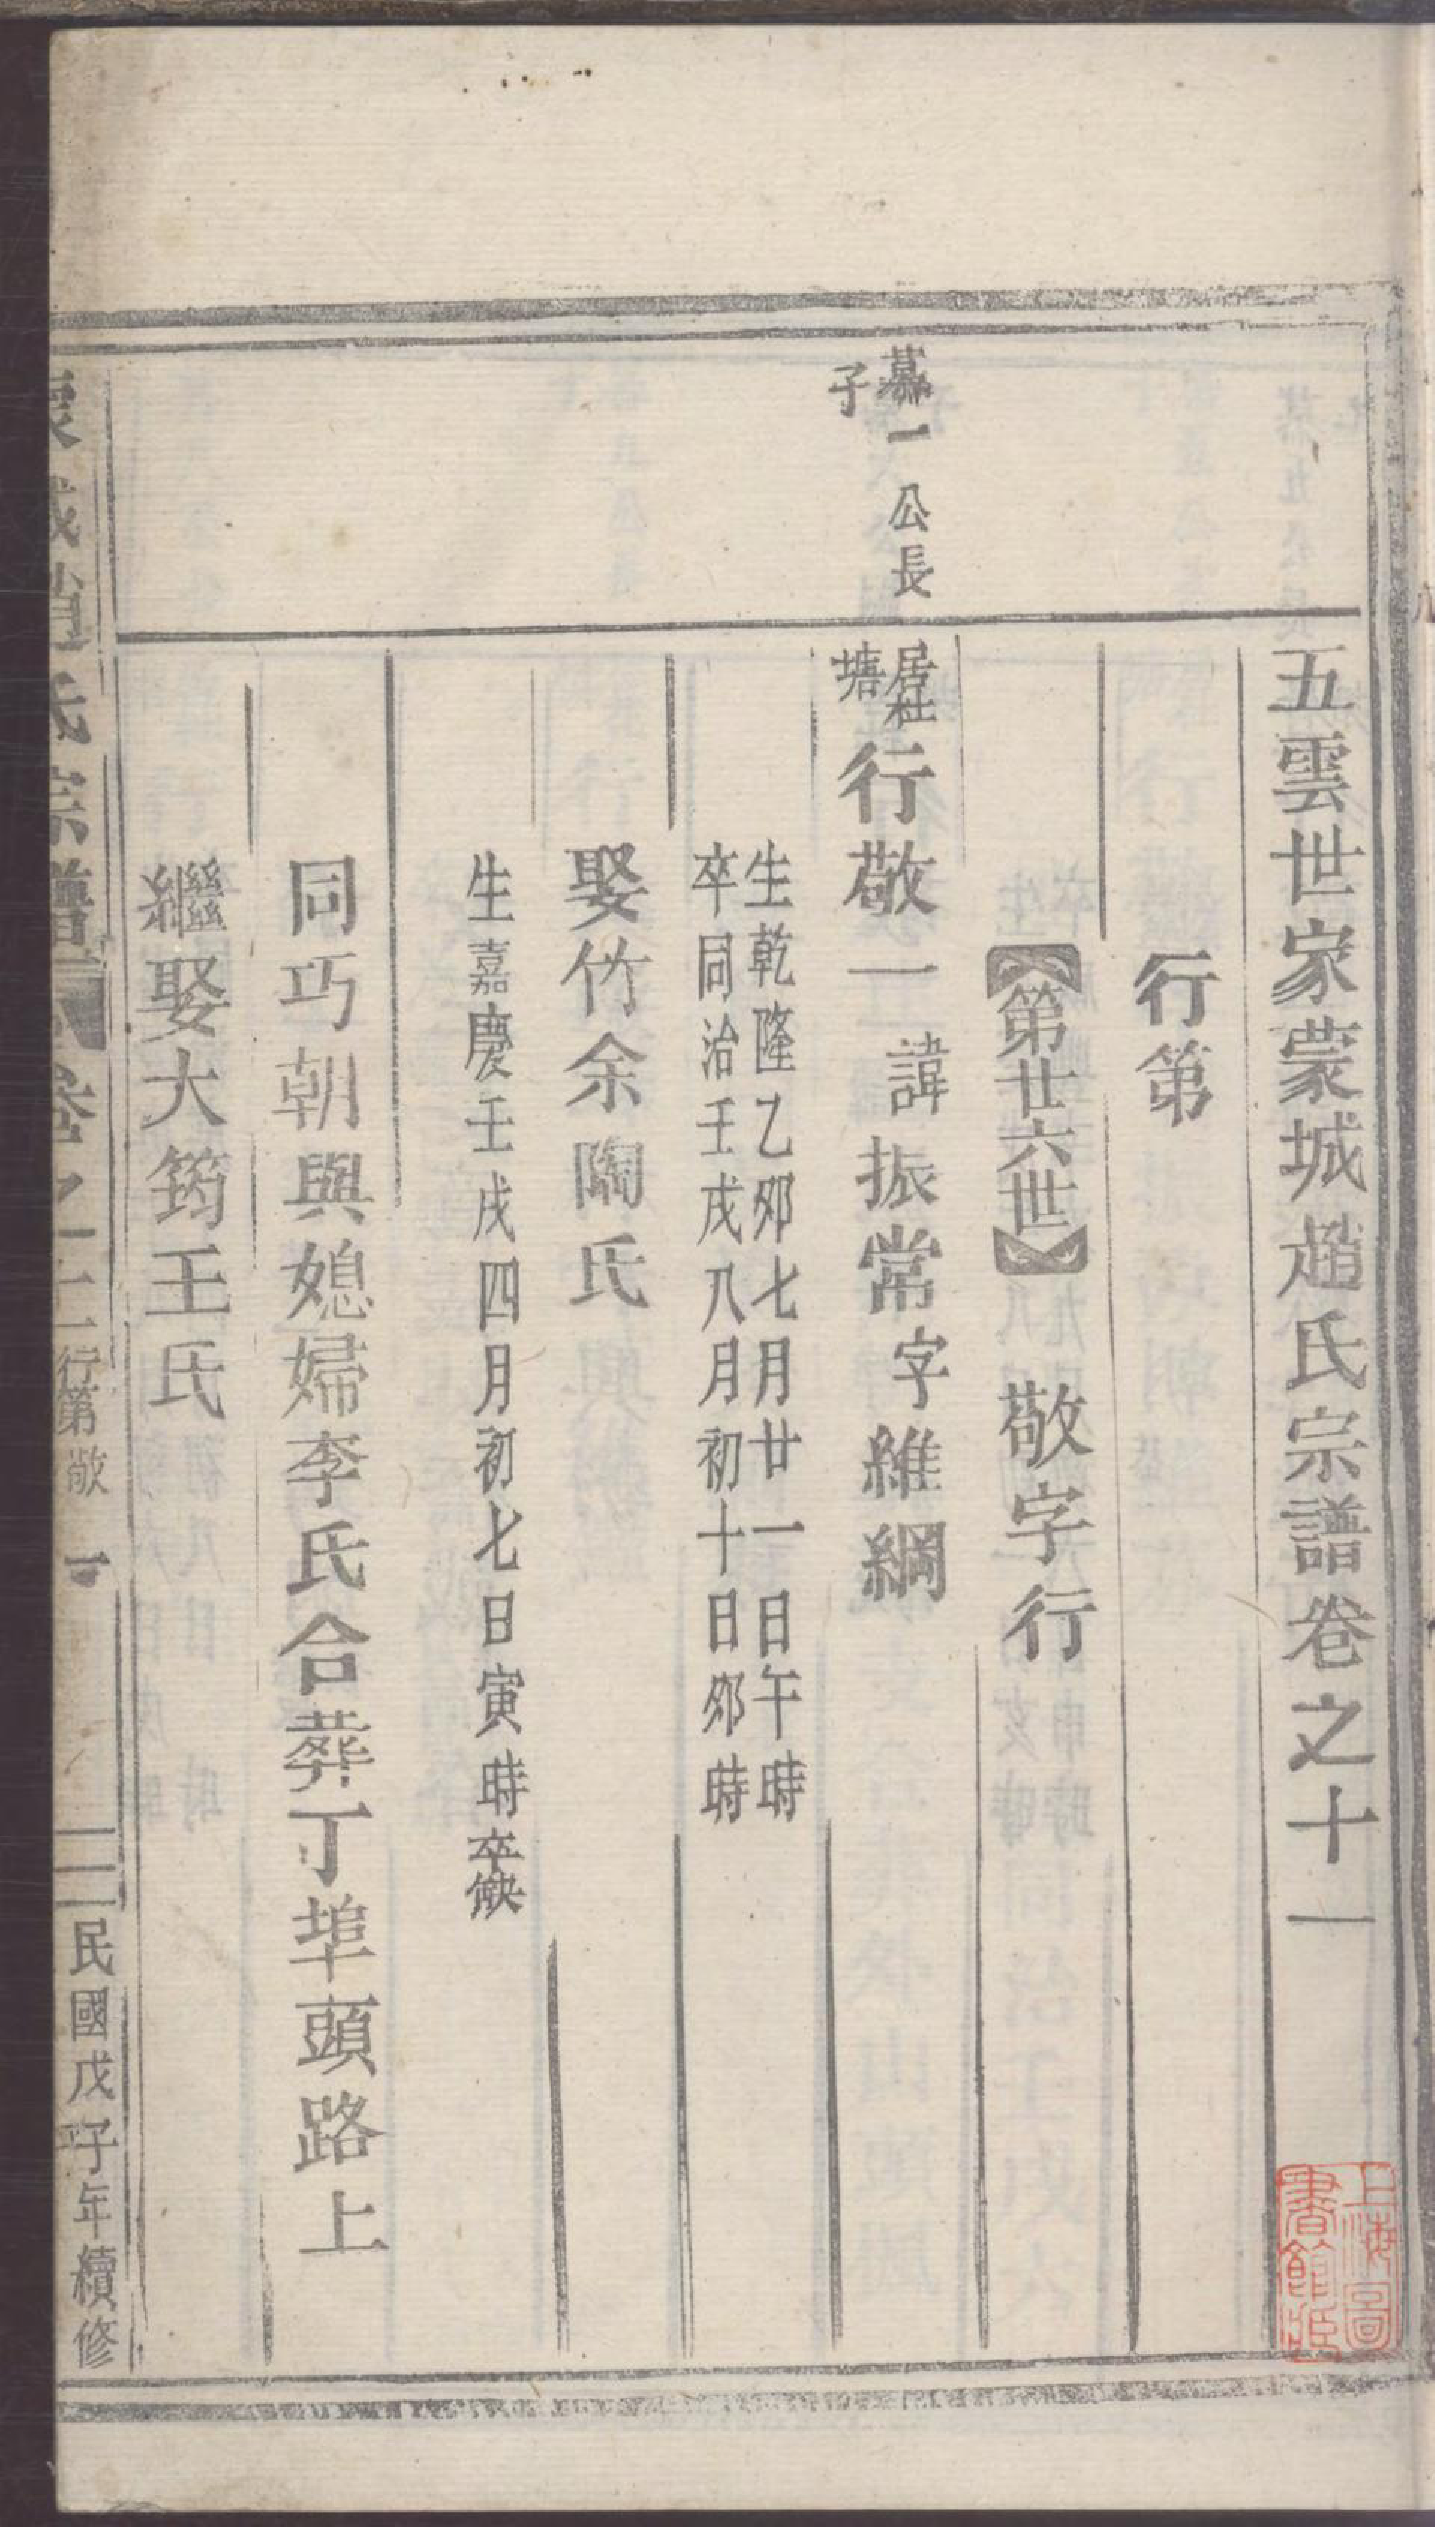 五雲世家蒙城趙氏宗譜卷之十一
行第
第廿六世 敬字行
慕一公長
子
居社
塘
行敬一 諱振常字維綱
生乾隆乙卯七月廿一日午時
卒同治壬戌八月初十日卯時
娶竹余陶氏
生嘉慶壬戌四月初七日寅時卒缺
同巧朝與媳婦李氏合葬丁埠頭路上
繼娶大筠王氏
趙氏宗譜 卷之十一 行第敬 一 民國戊子年續修
上海圖
書館藏